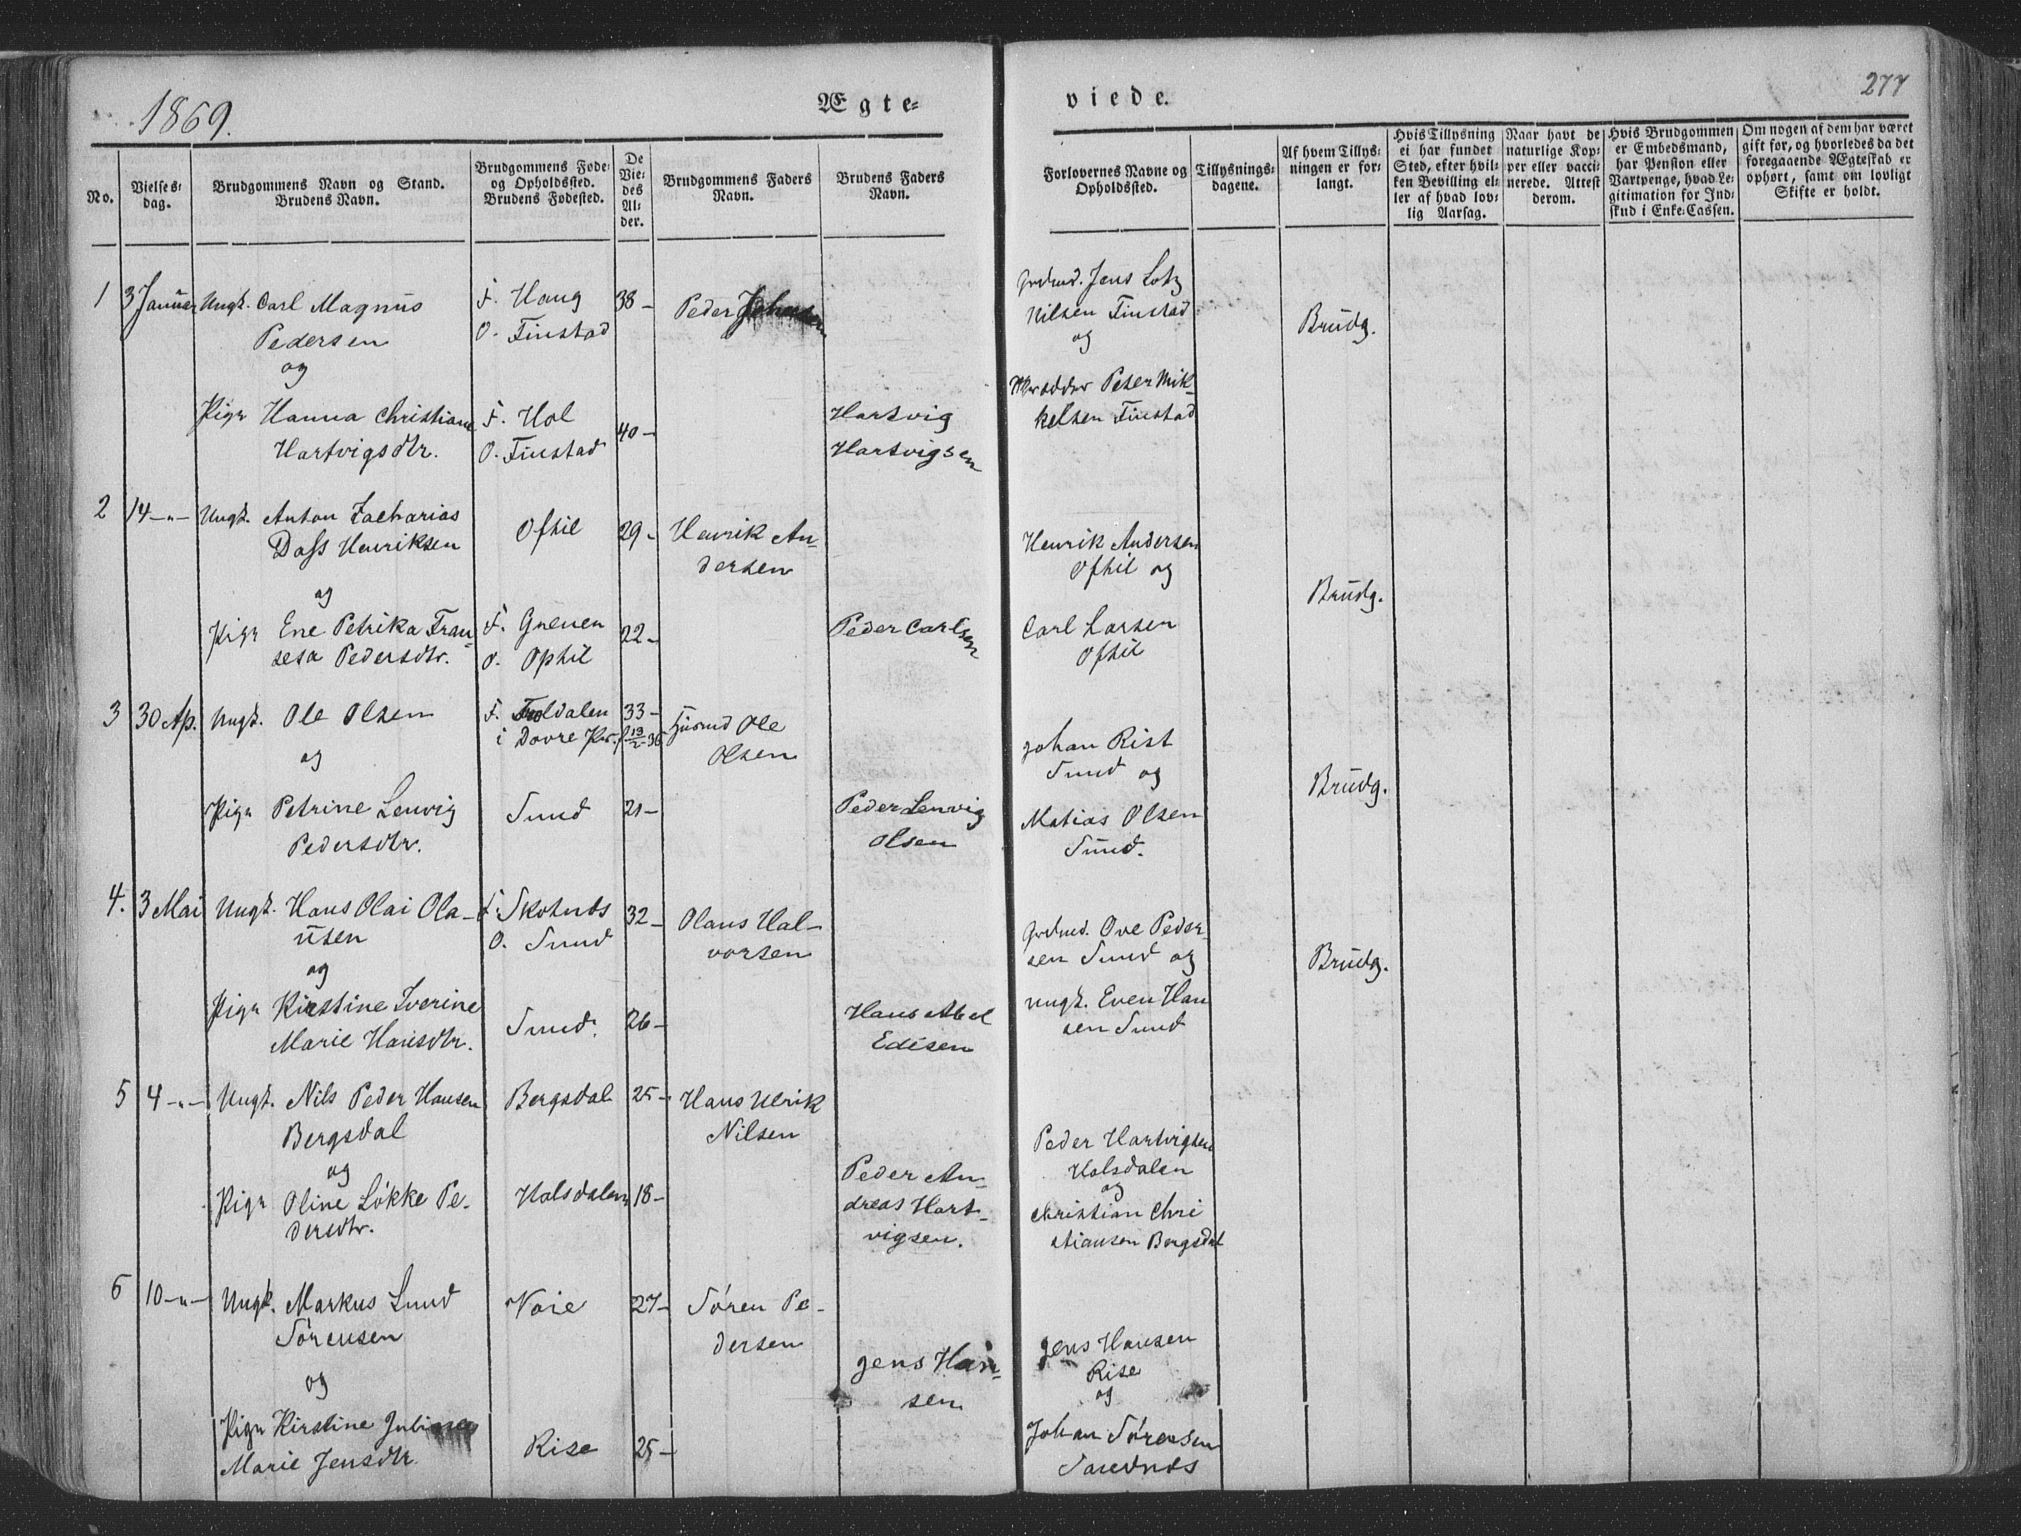 1869.
Ægte=
viede.
277
No.
Vielses=
dag.
Brudgommens Navn og Stand.
Brudens Navn.
Brudgommens Føde=
og Opholdssted.
Brudens Fødested.
De
Vie=
des
Al=
der.
Brudgommens Faders
Navn.
Brudens Faders
Navn.
Forlovernes Navne og
Opholdssted.
Tillysnings=
dagene.
Af hvem Tillys=
ningen er for=
langt.
Hvis Tillysning
ei har fundet
Sted, efter hvil=
ken Bevilling el=
ler af hvad lov=
lig Aarsag.
Naar havt de
naturlige Kop=
per eller vacci=
nerede. Attest
derom.
Hvis Brudgommen
er Embedsmand,
har Pension eller
Vartpenge, hvad Le=
gitimation for Ind=
skud i Enke=Cassen.
Om nogen af dem har været
gift før, og hvorledes da det
foregaaende Ægteskab er
ophørt, samt om lovligt
Skifte er holdt.
1 3 Januar Ungk. Carl Magnus
Pedersen
og
F. Haug
O. Finstad
38 -
Peder
Grdmd. Jens Lotz
Nilsen Finstad
og
Brudg.
Pige Hanna Christiane
Hartvigsdtr.
F. Hol
O. Finstad
40 -
Hartvig
Hartvigsen
Peter Mik-
kelsen Finstad
2 14 -"- Ungk. Anton Zacharias
Dass Henriksen
og
Ofhil
29 -
Henrik An-
dersen
Henrik Andersen
Ofhil og
Brudg.
Pige Ene Petrika Fran-
sesa Pedersdtr.
F. Greven
O. Ophil
22 -
Peder Carlsen
Carl Larsen
Ofhil
3 30 Ap. Ungk. Ole Olsen
og
F. Foldalen
i Dovre Pr.
33 -
f 13/2 36
Husmd Ole
Olsen
Johan Rist
Sund og
Brudg.
Pige Petrine Lenvig
Pedersdtr.
Sund
21 -
Peder Lenvig
Olsen
Matias Olsen
Sund.
4. 3 Mai Ungk. Hans Olai Ola-
usen
og
F. Skotnes
O. Sund
32 -
Olaus Hal-
vorsen
Grdmd. Ove Peder-
sen Sund og
Brudg.
Pige Kirstine Iverine
Marie Hansdtr.
Sund.
26 -
Hans Abel
Edisen
Ungk. Even Han
sen Sund
5 4 -"- Ungk. Nils Peder Hansen
Bergsdal
og
Bergsdal
25 -
Hans Ulrik
Nilsen
Peder Hartvigsen
Halsdalen
og
Pige Oline Løkke Pe-
dersdtr.
Halsdalen
18 -
Peder An-
dreas Hart-
vigsen.
Christian Chri
stiansen Bergsdal
6 10 -"- Ungk. Markus Lund
Sørensen
og
Voie
27 -
Søren Pe-
dersen
Jens Hansen
Rise
og
Pige Kirstine
Marie Jensdtr.
Rise
25 -
Jens Han-
sen
Johan Sørensen